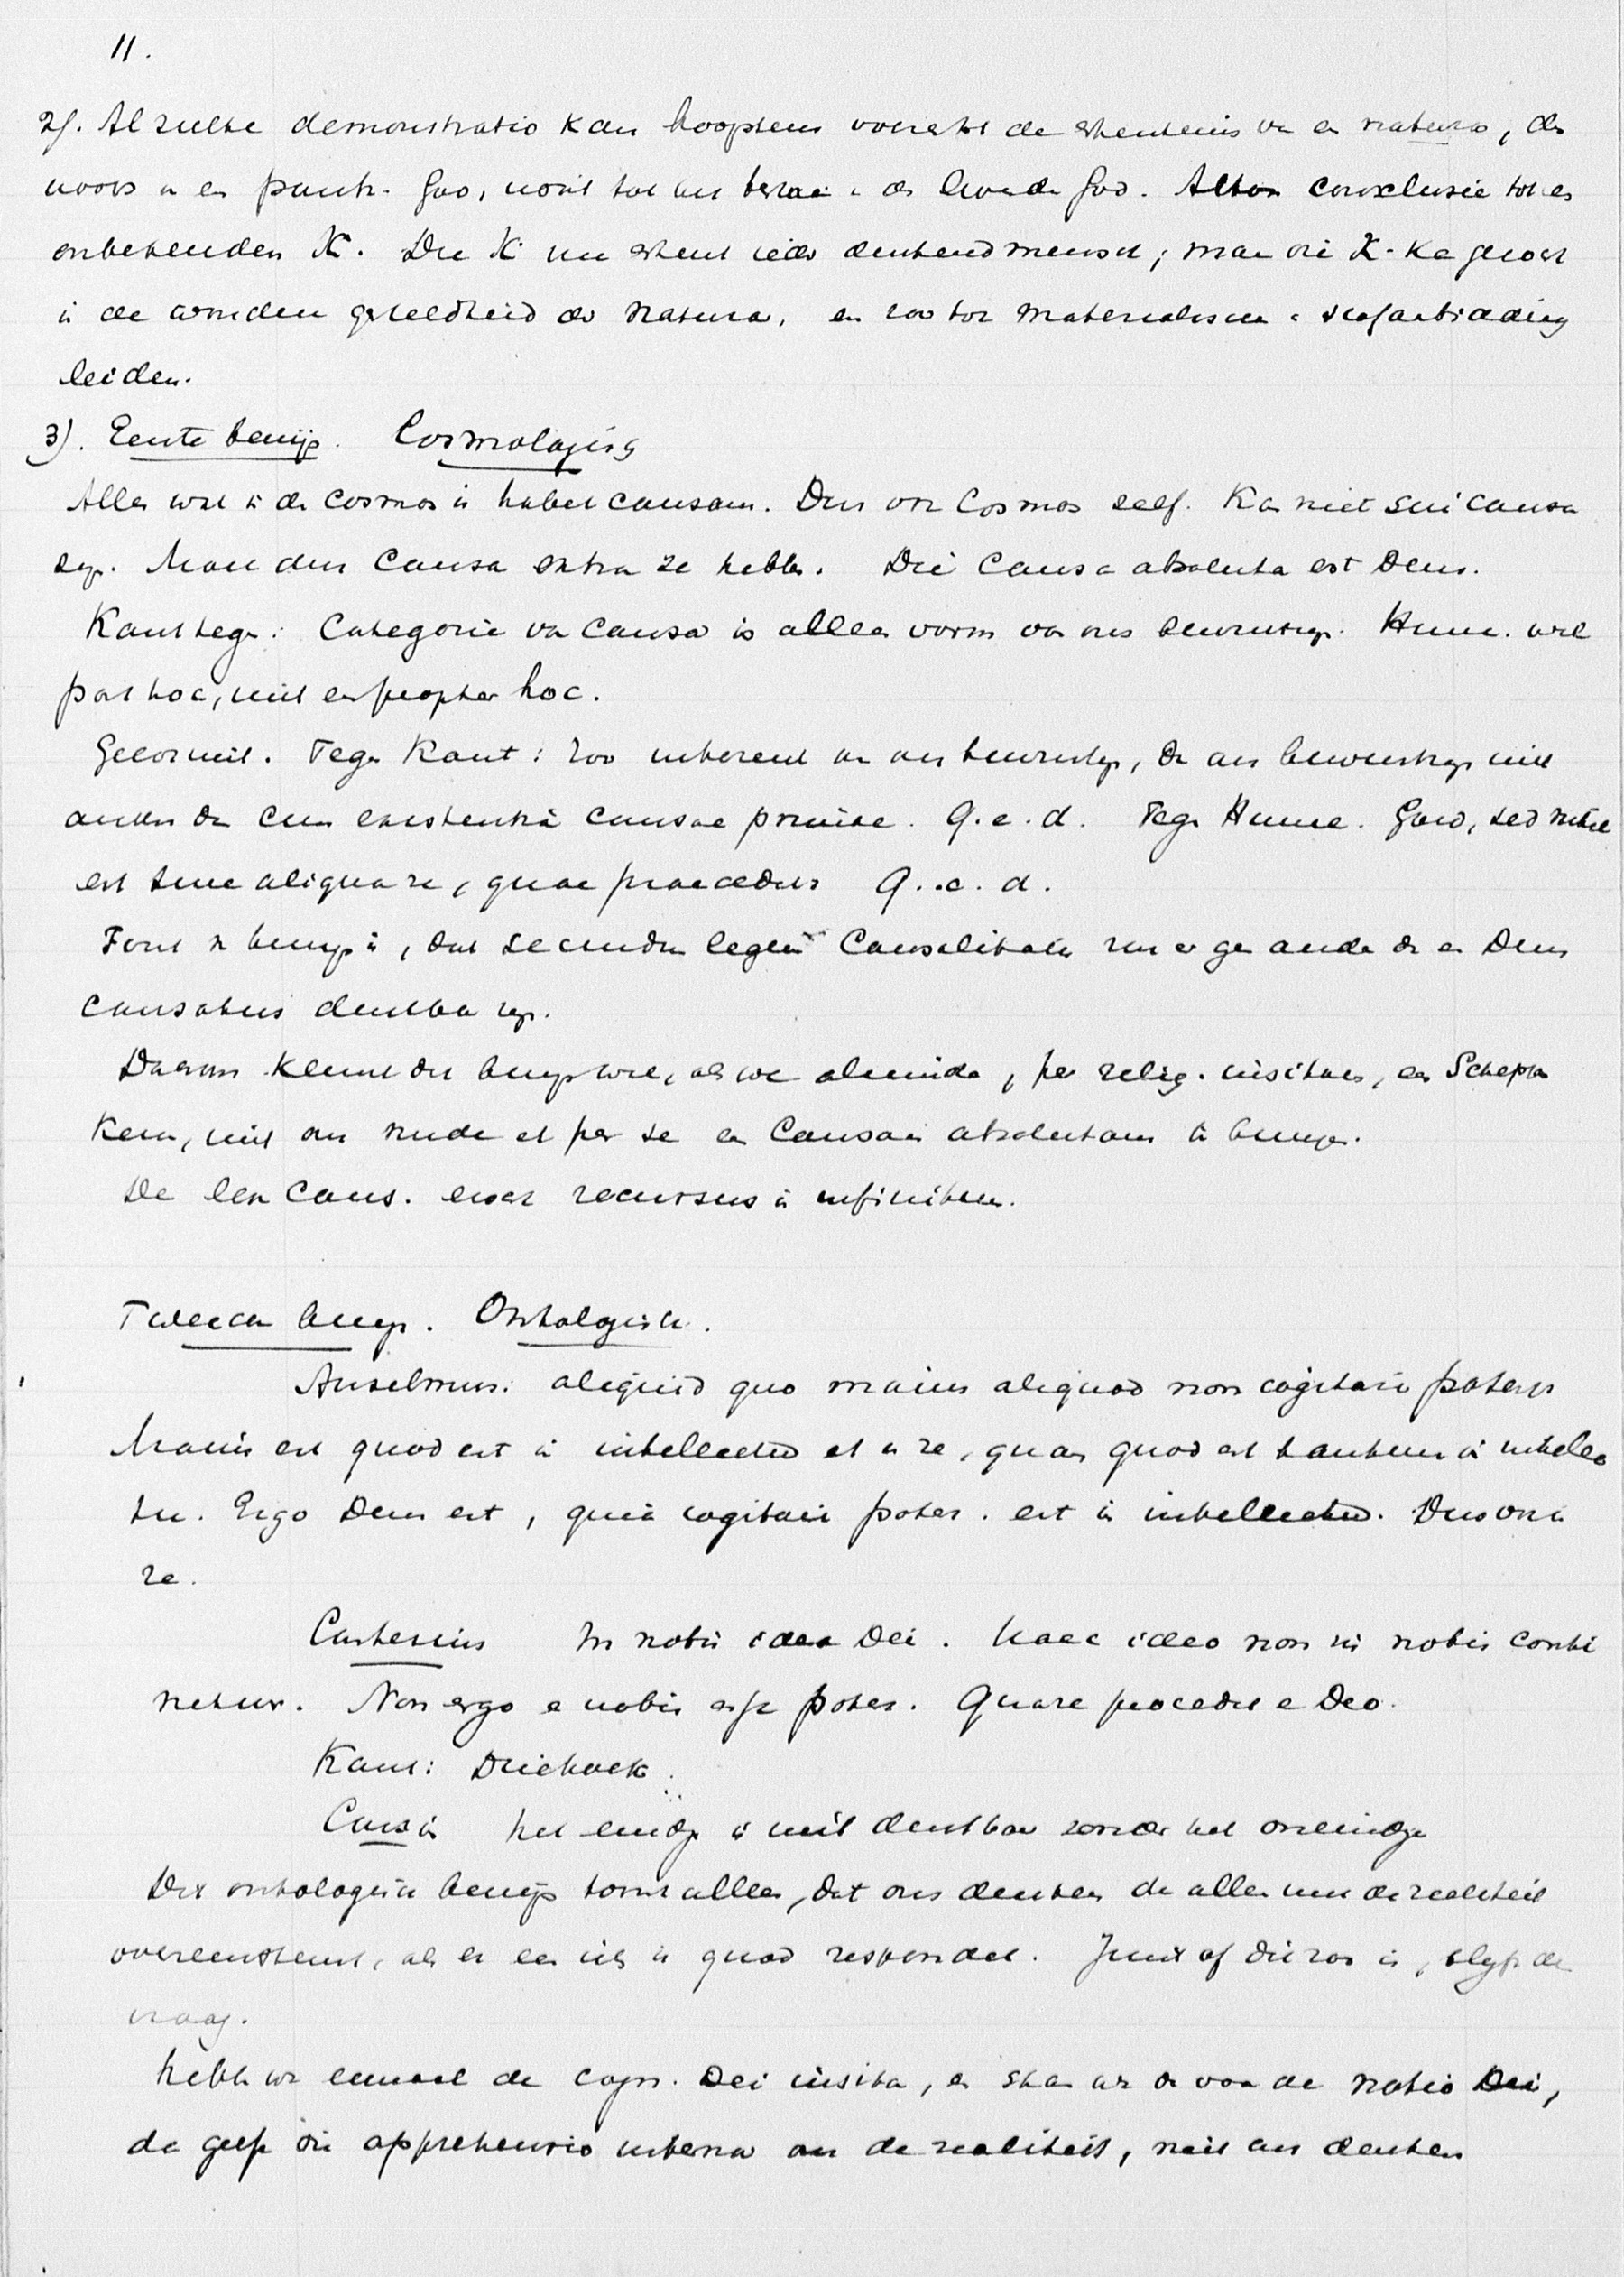 11.
2). Al zulke demonstratio kan hoogstens voeren tot de erkentenis van een natura, des
noods in een panth. God, nooit tot ons besrae in de levende God. Alton conclusie tot een
onbekenden X. Die X nu erkent ieder denkend mensch; maar die X. kan gezocht
in de wonden gesteldheid der natura, en zoo tot materialisme en stofaanbidding
leiden.
3). Eerste bewijs. Cosmologisch
Alles wat in de cosmos is habet causam. Dus ook cosmos zelf. Kan niet sui causa
zijn. Moet dus causa extra se hebben. Die causa absoluta est Deus.
Kant tegen: Categorie van causa is alleen vorm van ons bewustzijn. Hume. wel
post hoc, niet en propter hoc.
Geldt niet. Tegen Kant: zoo inherent aan ons bewustzijn, dat ons bewustzijn niet
anders dan cum existentia causae primae. Q.e.d. Tegen Hume. Goed, sed nihil
est sine aliqua re, quae praecedit Q.e.d.
Fout in bewijs is, dat secundum legem causalitatis hier er geen ander dan een Deus
causatus denkbaar zijn.
Daarom klemt dit bewijs wel, als we aliunde, per relig. insitam, een Schepper
kennen, niet om nude et per se een causam absolutam te bewijzen.
De lex caus. eischt recursus in infinitum.
Tweede bewijs. Ontologisch.
Anselmus: aliquid quo maius aliquod non cogitari potest
Maius est quod est in intellectu et in re, quam quod est tantum in intellec
tu. Ergo Deus est, quia cogitari potest. est in intellectu. Dus ook in
re.
Cartesius In nobis idea Dei. Haec idea non in nobis conti
netur. Non ergo e nobis esse potest. Quare procedit e Deo.
Kant: Driehoek.
Cousin het eindige is niet denkbaar zonder het oneindige
Dit ontologisch bewijs toont alleen, dat ons denken dan alleen met de realiteit
overeenstemt, als er een iets is quod respondet. Juist of dit zoo is, blijft de
vraag.
Hebben we eenmaal de cogn. Dei insita, en staan we er voor de notio Dei,
dan geeft die apprehensio interna ons de realiteit, niet ons denken